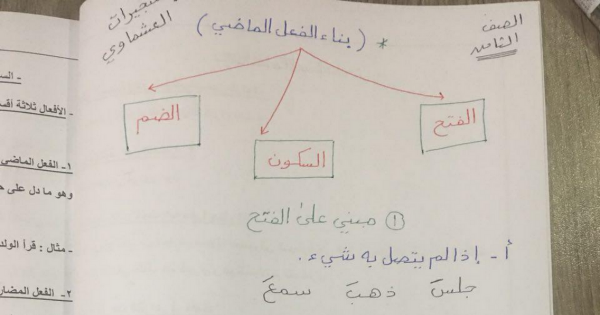 الصف
الثامن
* ( بناء الفعل الماضي )
العشماوي
الفتح
السكون
الضم
① مبني على الفتح
أ- إذا لم يتصل به شيء .
جلسَ ذهبَ سمعَ
- الأفعال ثلاثة
١- الفعل الماضي
وهو ما دل على
- مثال : قرأ الولد
٢- الفعل المضار